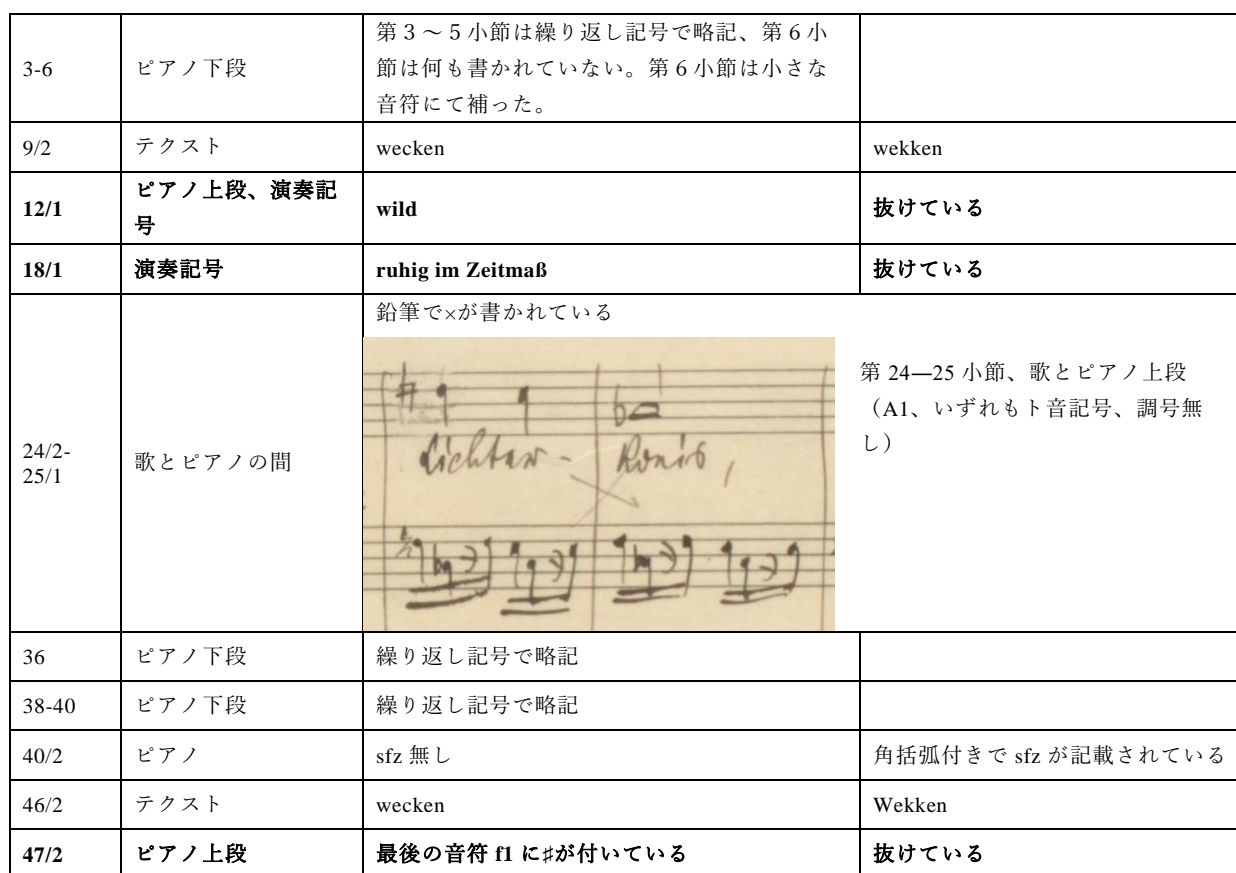 3-6
ピアノ下段
第3～5小節は繰り返し記号で略記、第6小
節は何も書かれていない。第6小節は小さな
音符にて補った。
9/2
テクスト
wecken
wekken
12/1
ピアノ上段、演奏記
号
wild
抜けている
18/1
演奏記号
ruhig im Zeitmaß
抜けている
24/2-
25/1
歌とピアノの間
鉛筆で×が書かれている
第 24—25 小節、歌とピアノ上段
（A1、いずれもト音記号、調号無
し）
36
ピアノ下段
繰り返し記号で略記
38-40
ピアノ下段
繰り返し記号で略記
40/2
ピアノ
sfz 無し
角括弧付きで sfz が記載されている
46/2
テクスト
wecken
Wekken
47/2
ピアノ上段
最後の音符 f1 に♯が付いている
抜けている